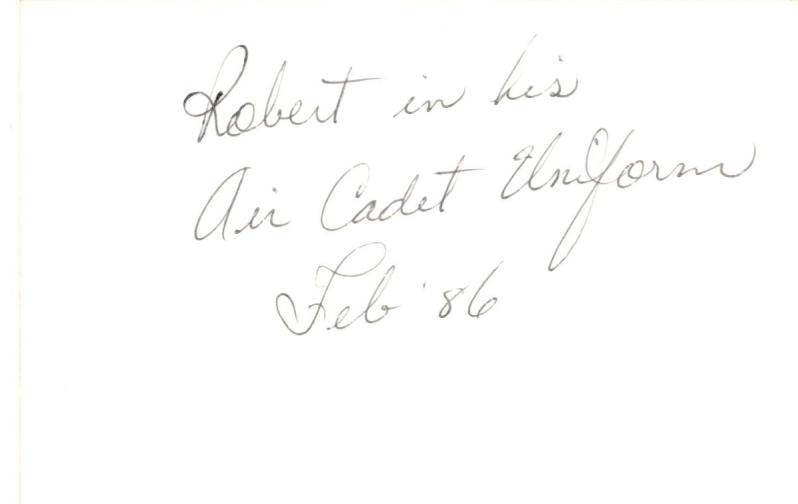 Robert in his
Air Cadet Uniform
Feb '86